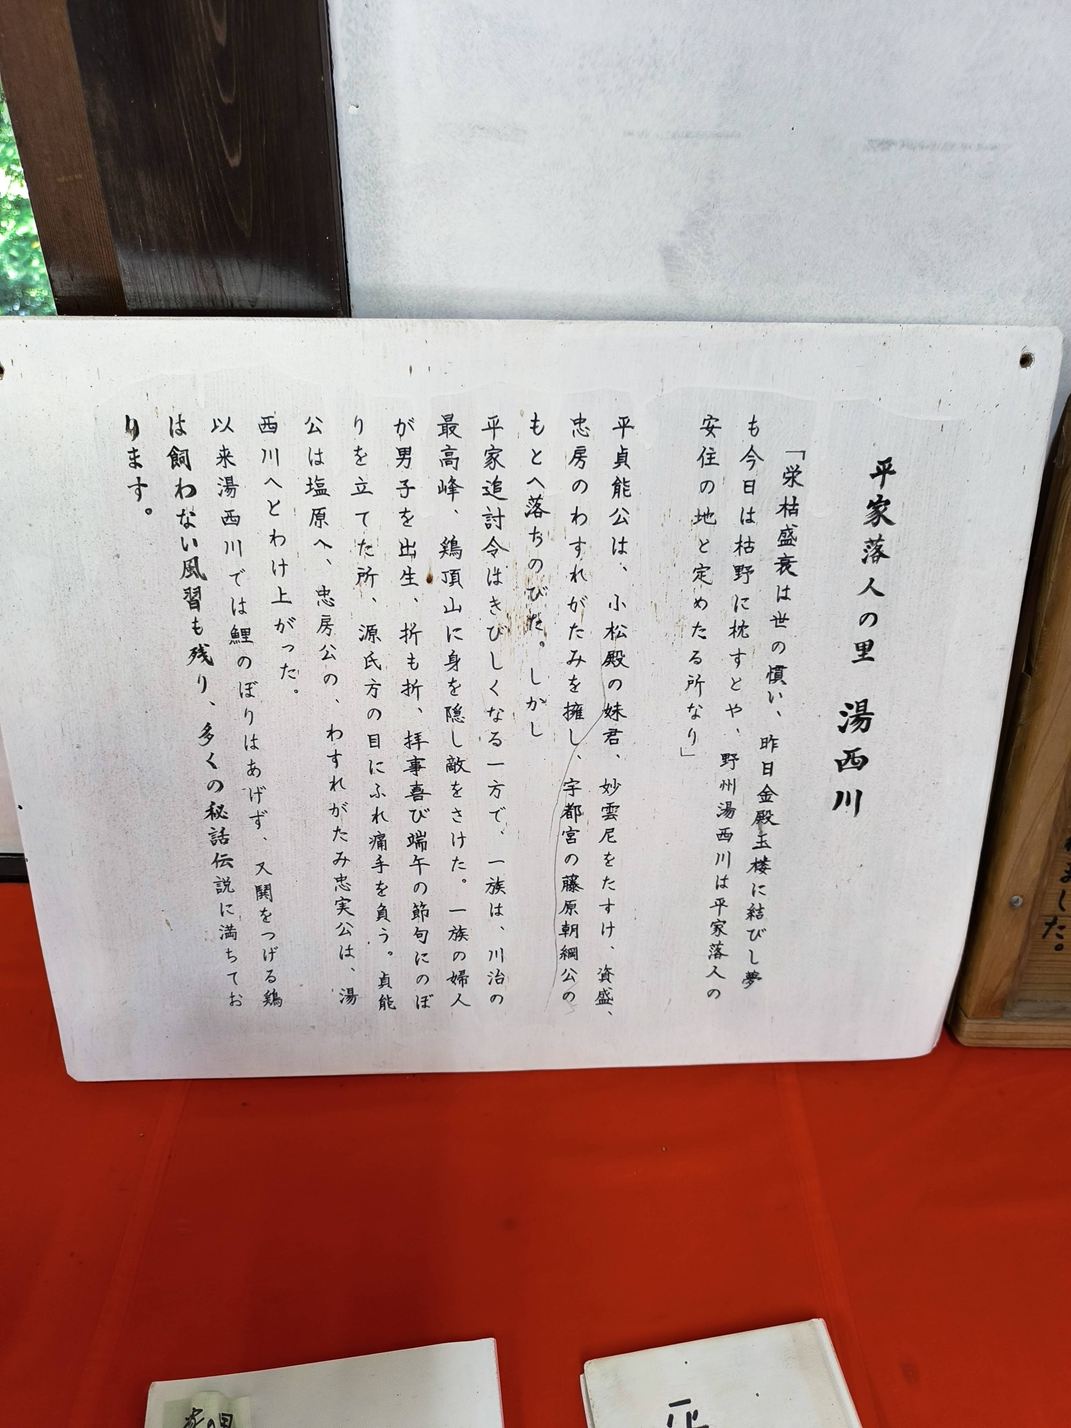 平家落人の里　湯西川
「栄枯盛衰は世の慣い、昨日金殿玉楼に結びし夢
も今日は枯野に枕すとや、野州湯西川は平家落人の
安住の地と定めたる所なり」
平貞能公は、小松殿の妹君、妙雲尼をたすけ、資盛、
忠房のわすれがたみを擁し、宇都宮の藤原朝綱公の
もとへ落ちのびた。しかし
平家追討令はきびしくなる一方で、一族は、川治の
最高峰、鶏頂山に身を隠し敵をさけた。一族の婦人
が男子を出生、折も折、拝事喜び端午の節句にのぼ
りを立てた所、源氏方の目にふれ痛手を負う。貞能
公は塩原へ、忠房公の、わすれがたみ忠実公は、湯
西川へとわけ上がった。
以来湯西川では鯉のぼりはあげず、又鬨をつげる鶏
は飼わない風習も残り、多くの秘話伝説に満ちてお
ります。
ました。